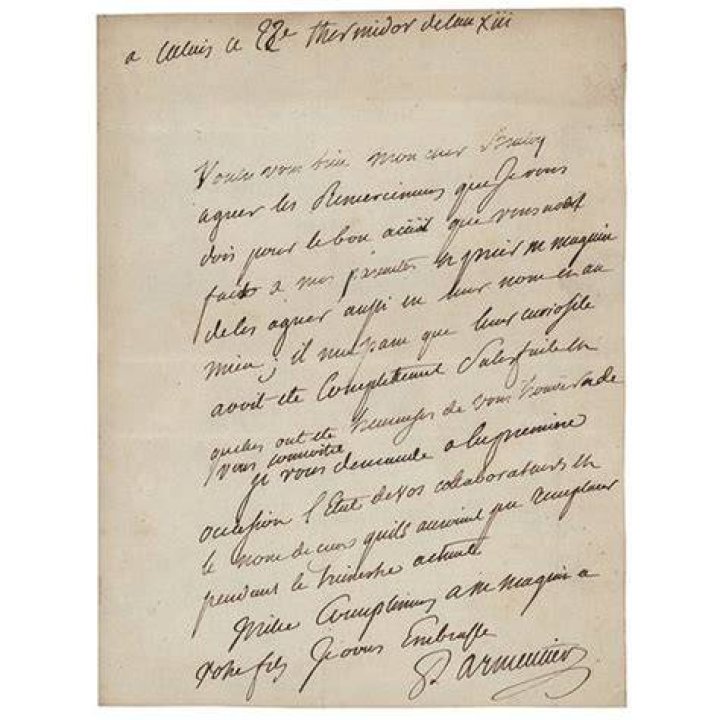 a Calais ce 22e thermidor de l'an xiii
Voulez vous bien mon cher
agreer les Remerciemens que Je vous
dois pour le bon accueil que vous avez
fait a mes parentes et prier me maquin
de les agreer aussi en leur nom et au
mien; il me parait que leur curiosité
avoit été Completement Satisfaite et
quelles ont été de vous trouver et de
vous connoitre
je vous demande a la premiere
occasion l'Etat de vos collaborateurs et
le nom de ceux quils auroient pu remplacer
pendant le trimestre actuel
Mille Complimens a me maquin a
votre fils Je vous Embrasse
Parmentier